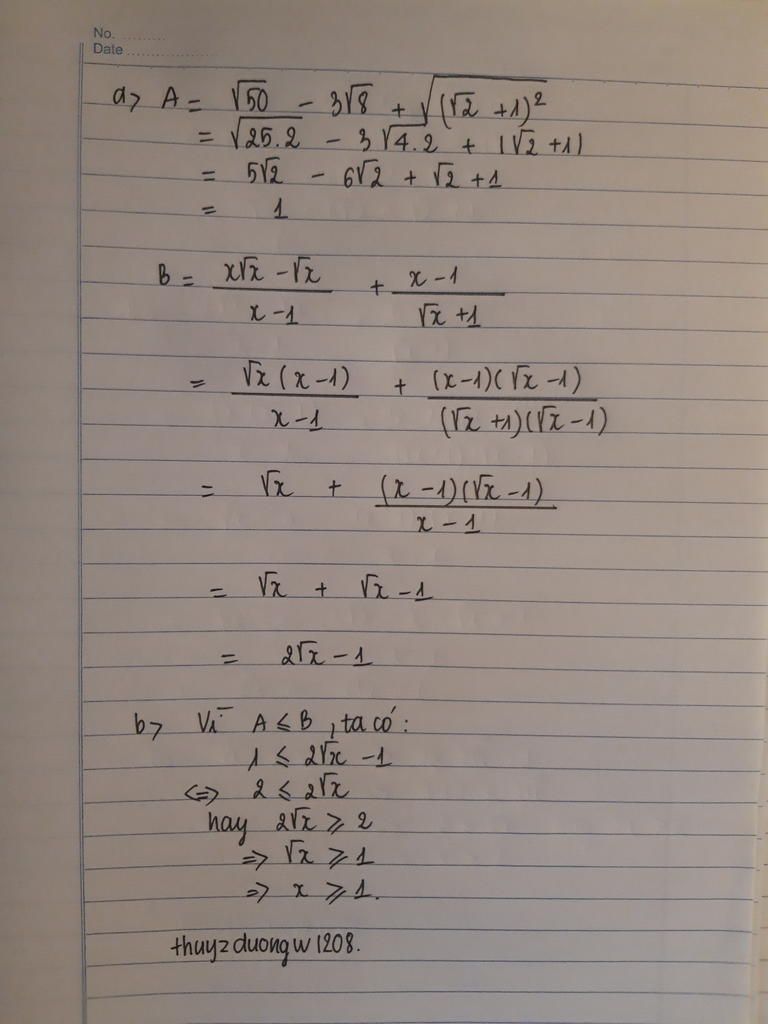 No. ..........
Date ....................
a> A = √50 - 3√8 + √(√2 +1)²
= √25.2 - 3√4.2 + |√2 +1|
= 5√2 - 6√2 + √2 +1
= 1
B = (x√x - √x)/(x - 1) + (x - 1)/(√x +1)
= (√x (x - 1))/(x - 1) + ((x - 1)(√x - 1))/((√x +1)(√x - 1))
= √x + ((x - 1)(√x - 1))/(x - 1)
= √x + √x - 1
= 2√x - 1
b> Vì A ≤ B, ta có:
1 ≤ 2√x - 1
<=> 2 ≤ 2√x
hay 2√x ≥ 2
=> √x ≥ 1
=> x ≥ 1.
thuyzduongw1208.